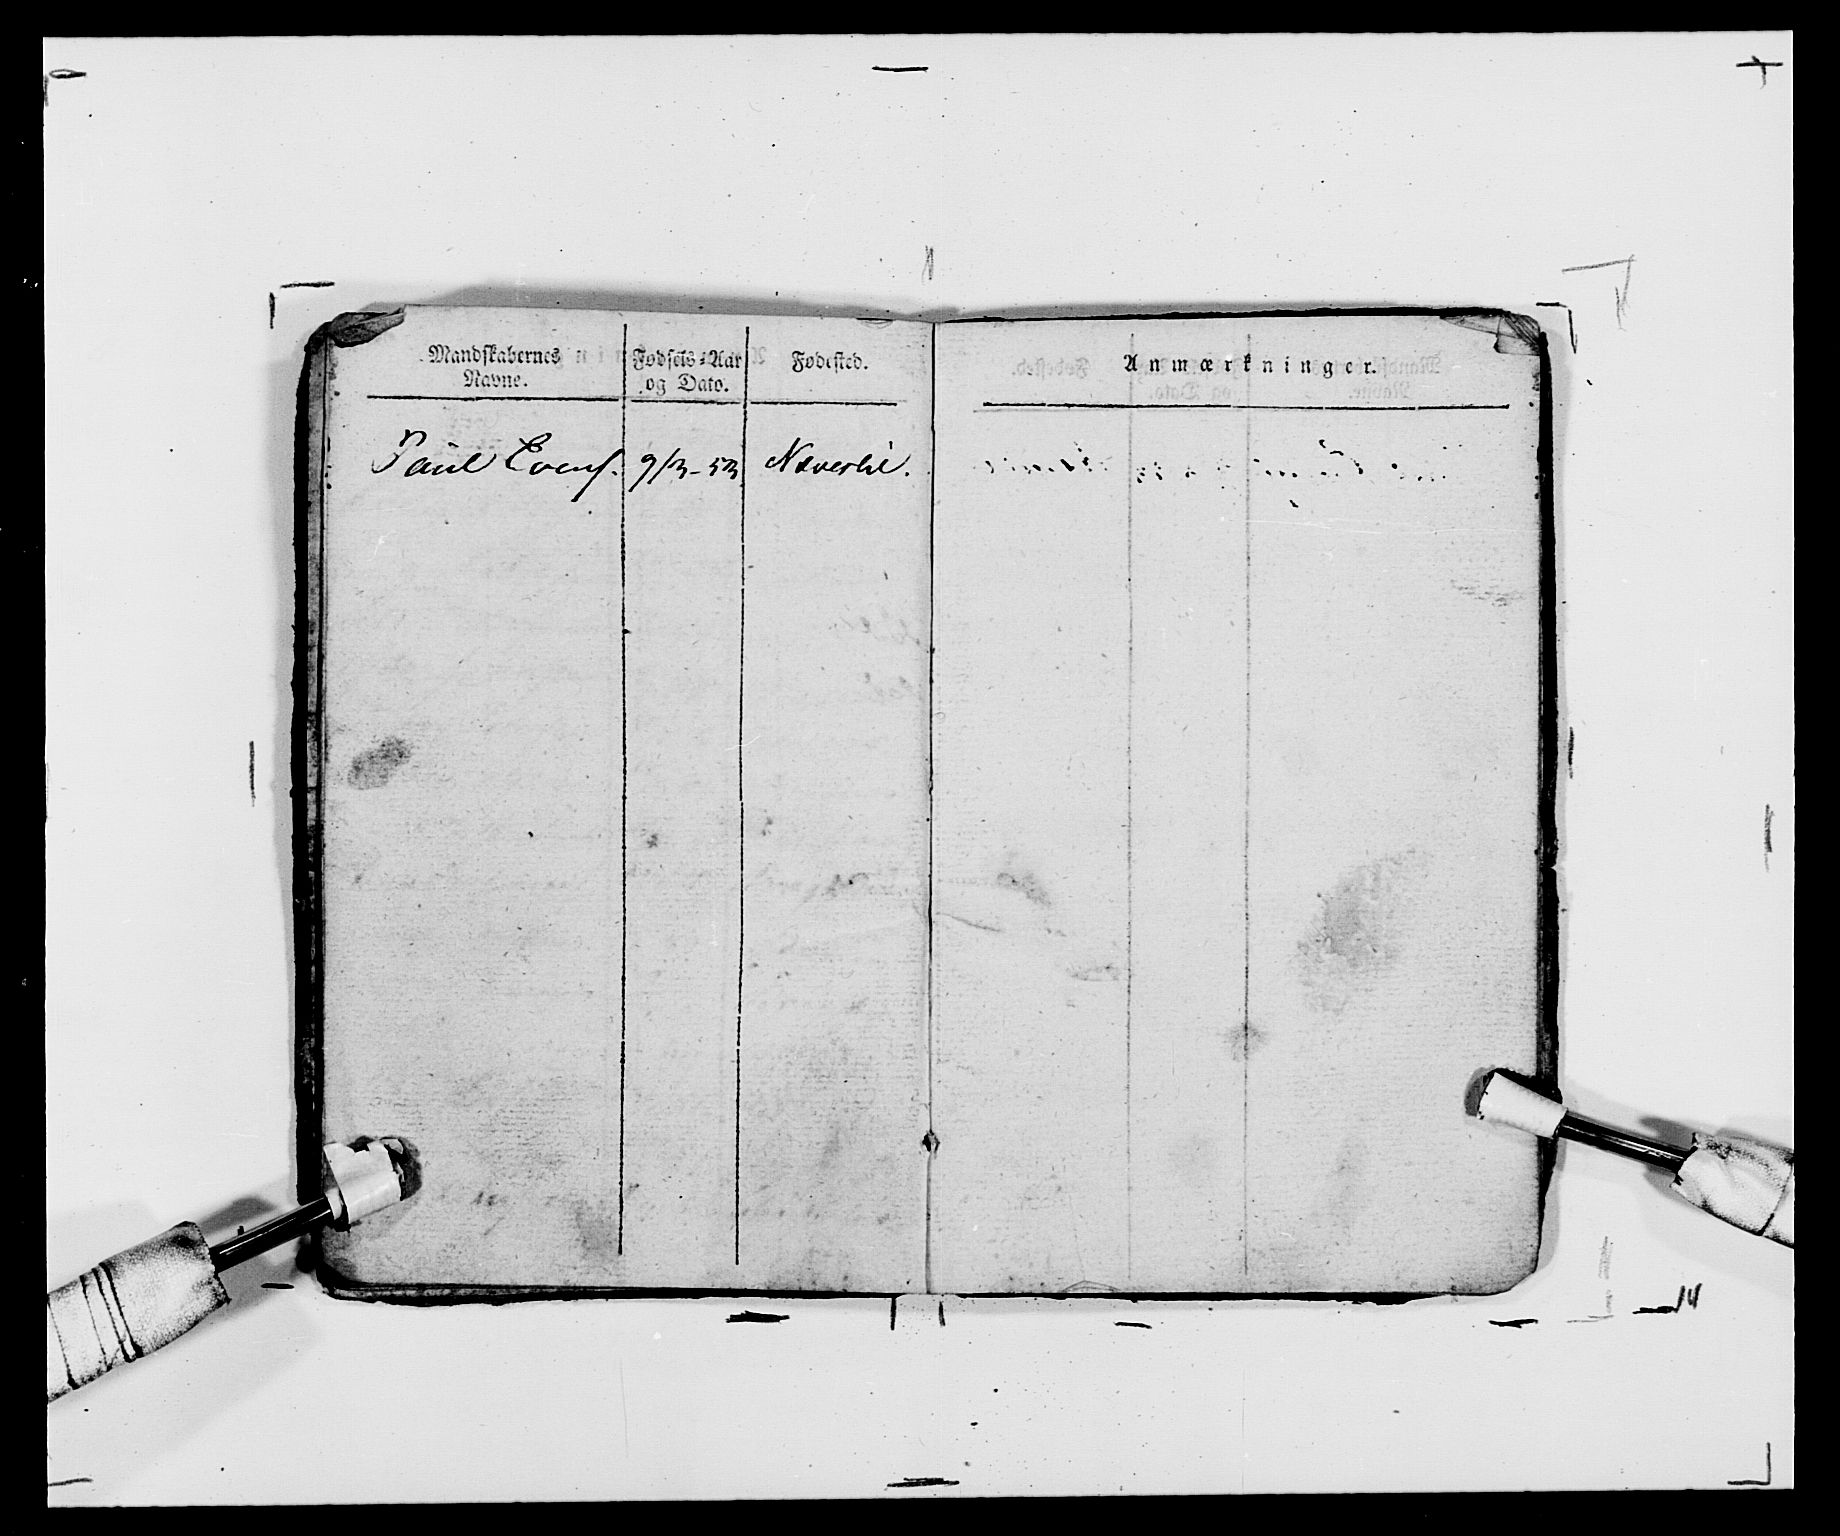 Mandskabernes Navne. Fødsels-Aar og Dato. Fødested. Anmærkninger.
Paul Evens. 9/3-53 Næverlie.
14